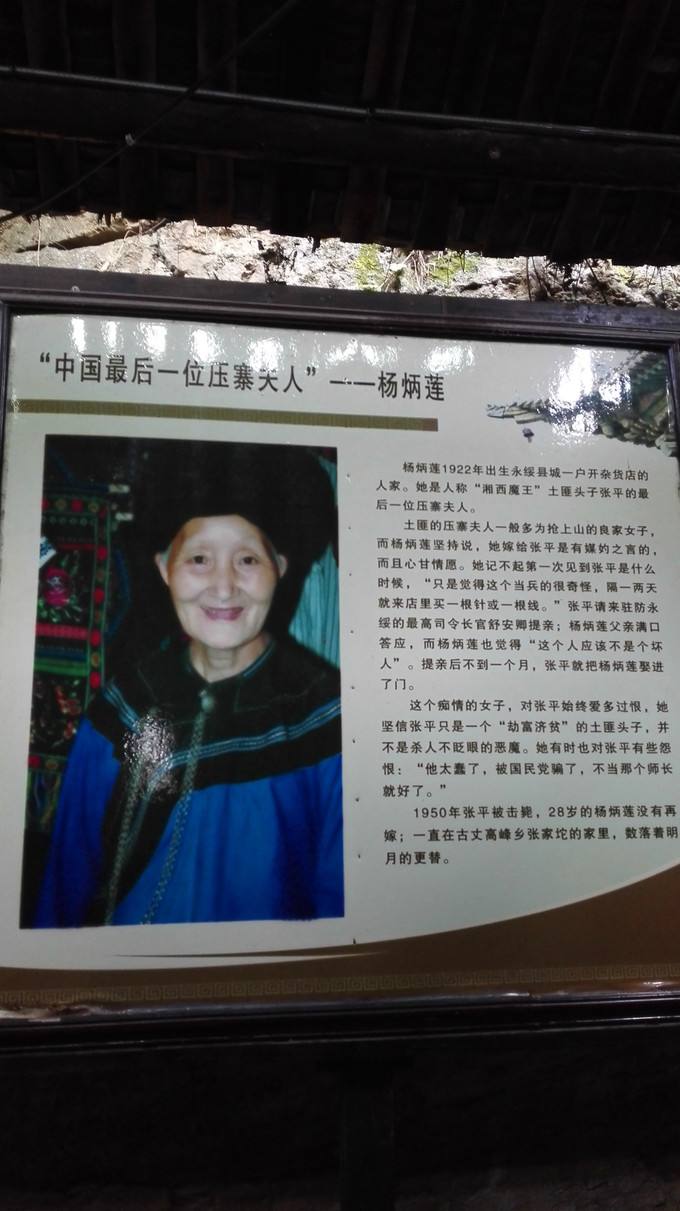 “中国最后一位压寨夫人”——杨炳莲
杨炳莲1922年出生永绥县城一户开杂货店的
人家。她是人称“湘西魔王”土匪头子张平的最
后一位压寨夫人。
土匪的压寨夫人一般多为抢上山的良家女子，
而杨炳莲坚持说，她嫁给张平是有媒妁之言的，
而且心甘情愿。她记不起第一次见到张平是什么
时候，“只是觉得这个当兵的很奇怪，隔一两天
就来店里买一根针或一根线。”张平请来驻防永
绥的最高司令长官舒安卿提亲；杨炳莲父亲满口
答应，而杨炳莲也觉得“这个人应该不是个坏
人”。提亲后不到一个月，张平就把杨炳莲娶进
了门。
这个痴情的女子，对张平始终爱多过恨，她
坚信张平只是一个“劫富济贫”的土匪头子，并
不是杀人不眨眼的恶魔。她有时也对张平有些怨
恨：“他太蠢了，被国民党骗了，不当那个师长
就好了。”
1950年张平被击毙，28岁的杨炳莲没有再
嫁；一直在古丈高峰乡张家坨的家里，数落着明
月的更替。